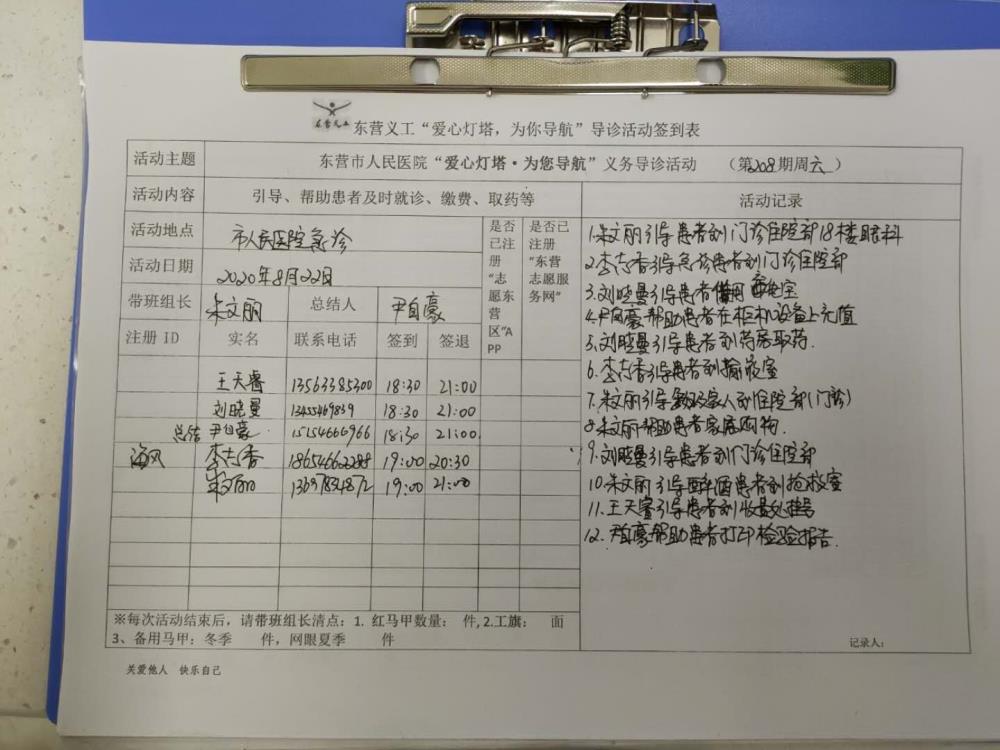 东营义工
东营义工“爱心灯塔，为你导航”导诊活动签到表
活动主题 东营市人民医院“爱心灯塔·为您导航”义务导诊活动 （第208期周六）
活动内容 引导、帮助患者及时就诊、缴费、取药等 活动记录
活动地点 市人民医院急诊
活动日期 2020年8月22日
带班组长 朱文丽 总结人 尹自豪
是否已注册“志愿东营区”APP
是否已注册“东营志愿服务网”
注册 ID 实名 联系电话 签到 签退
王天睿 13563385300 18:30 21:00
刘晓曼 13455469839 18:30 21:00
总结 尹自豪 15154666966 18:30 21:00
海风 李志香 18654662288 19:00 20:30
朱文丽 13697834872 19:00 21:00
1.朱文丽引导患者到门诊住院部18楼眼科
2.李志香引导急诊患者到门诊住院部
3.刘晓曼引导患者借用
4.尹自豪帮助患者在柜机设备上充值
5.刘晓曼引导患者到药房取药.
6.李志香引导患者到输液室
7.朱文丽引导家人到住院部(门诊)
8.朱文丽帮助患者家属购物.
9.刘晓曼引导患者到门诊住院部
10.朱文丽引导醉酒患者到抢救室
11.王天睿引导患者到收费处挂号
12.尹自豪帮助患者打印检验报告.
※每次活动结束后，请带班组长清点：1. 红马甲数量： 件,2.工旗： 面
3、备用马甲：冬季 件，网眼夏季 件
记录人：
关爱他人 快乐自己